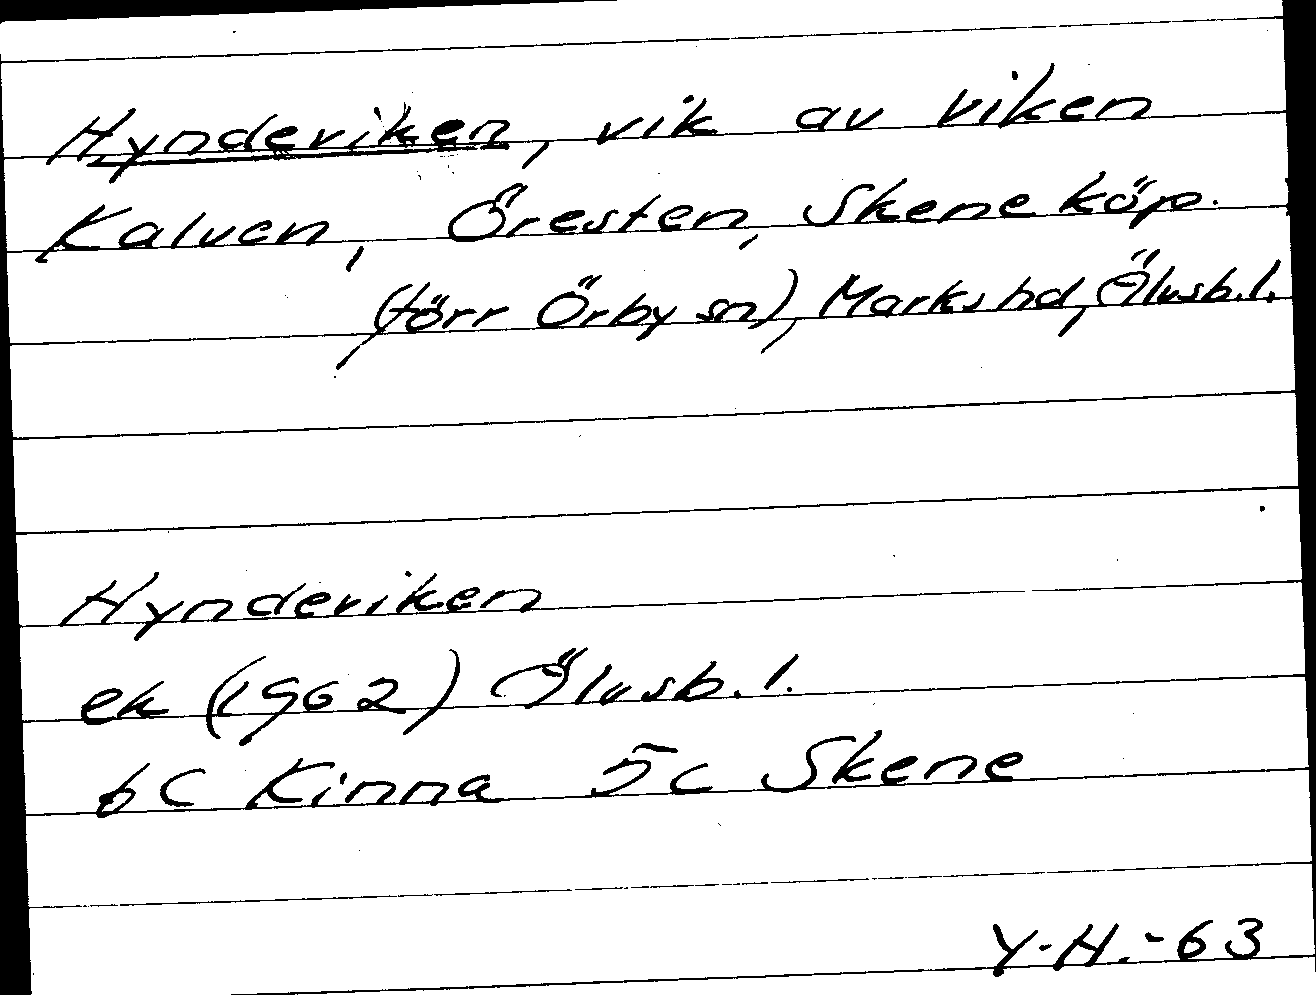 Hynderviken, vik av viken
Kalven, Öresten, Skene köp.
(förr Örby sn), Marks hd, Älvsb.l.
Hynderviken
ek (1962) Älvsb.l.
6C Kinna 5c Skene
Y-H.-63